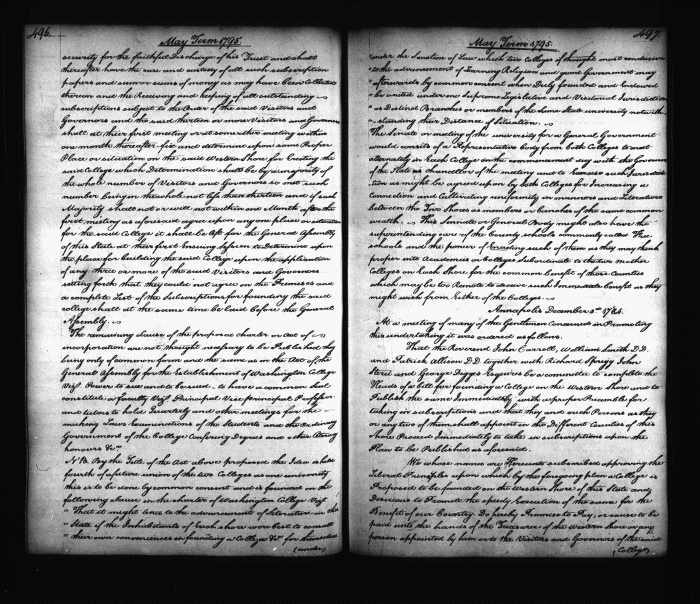 496.
May Term 1795.
security for the faithful Discharge of his Trust and shall
thereafter have the care and custody of all such subscription
papers and sums of money as may have been Collected
thereon and the Receiving and keeping of all outstanding
subscriptions subject to the Order of the said Visitors and
Governors and the said thirteen or more Visitors and Governors
shall at their first meeting or at some other meeting within
one month thereafter fix and determine upon some Proper
Place or situation on the said Western Shore for Erecting the
said College which Determination shall be by a majority of
the whole number of Visitors and Governors so met such
number being on the whole not less than thirteen and if such
Majority shall not or could not within one Month after the
first meeting as aforesaid agree upon any one place or situation
for the said College it shall be left for the General Assembly
of this State at their first Ensuing Session to Determine upon
the place for building the said College upon the application
of any three or more of the said Visitors and Governors
setting forth that they could not agree on the Premises and
a complete List of the Subscriptions for founding the said
college shall at the same time be laid before the General
Assembly.
The remaining clauses of the proposed charter or Act of
incorporation are not thought necessary to be Published they
being only of common form and the same as in the Act of the
General Assembly for the Establishment of Washington College
Vizt Power to sue and to be sued, to have a common seal
constitute a faculty Vizt Principal Vice principal Professors
and tutors to hold Quarterly and other meetings for the
making Laws Examinations of the Students and the ordering
Government of the College Confering Degrees and other literary
honours &c
N B. By the Title of the Act above proposed the Idea is held
forth of a future union of the two Colleges as one university
this is to be done by common consent and is founded on the
following clause in the charter of Washington College Vizt
"That it might tend to the advancement of Literature in this
"State if the Inhabitants of Each shore were best to consult
"their own convenience in founding a College &c for themselves
(under)
497.
May Term 1795
"under the Sanction of Law which two Colleges if thought most conducive
"to the advancement of Learning Religion and good Government may
"afterwards by common consent when Duly founded and Endowed
"be united under one Supreme Legislative and Visitorial Jurisdiction
"as Distinct Branches or members of the same State university notwith
"standing their Distance of Situation.
The Senate or meeting of the university for a General Government
would consist of a Representative body from both Colleges to meet
alternately in Each College on the commencement day with the Governor
of the State as chancellor of the meeting and to Exercise such Jurisdic
tion as might be agreed upon by both Colleges for Increasing a
Connection and Cultivating uniformity in manners and Literature
between the Two Shores as members or branches of the same common
wealth. This Senate or General Body might also have the
superintending care of the County schools commonly called Free
schools and the power of Erecting such of them as they may think
proper into Academies or Colleges Subordinate to the two mother
Colleges on Each Shore for the common benefit of those Counties
which may be too Remote to deceive such Immediate benefit as they
might wish from Either of the Colleges.
Annapolis December 3d 1784.
At a meeting of many of the Gentlemen concerned in Promoting
this undertaking it was ordered as follows.
That the Reverend John Carroll, William Smith D.D.
and Patrick Allison D D. together with Richard Sprigg John
Steret and George Diggs Esquires be a committee to complete the
Heads of a bill for founding a College on the Western Shore and to
Publish the same Immediately with a proper Preamble for
taking in subscriptions and that they and such Persons as they
or any two of them shall appoint in the Different Counties of this
shore Proceed Immediately to take in subscriptions upon the
Plan to be Published as aforesaid.
We whose names are Hereunto subscribed approving the
Liberal Principles upon which by the foregoing plan a College is
Proposed to be founded on the Western Shore of this State and
Desirous to Promote the speedy Execution of the same for the
Benefit of our Country Do freely Promise to Pay, or cause to be
paid into the hands of the Treasurer of the Western Shore or any
person appointed by him or to the Visitors and Governors of the said
(College)